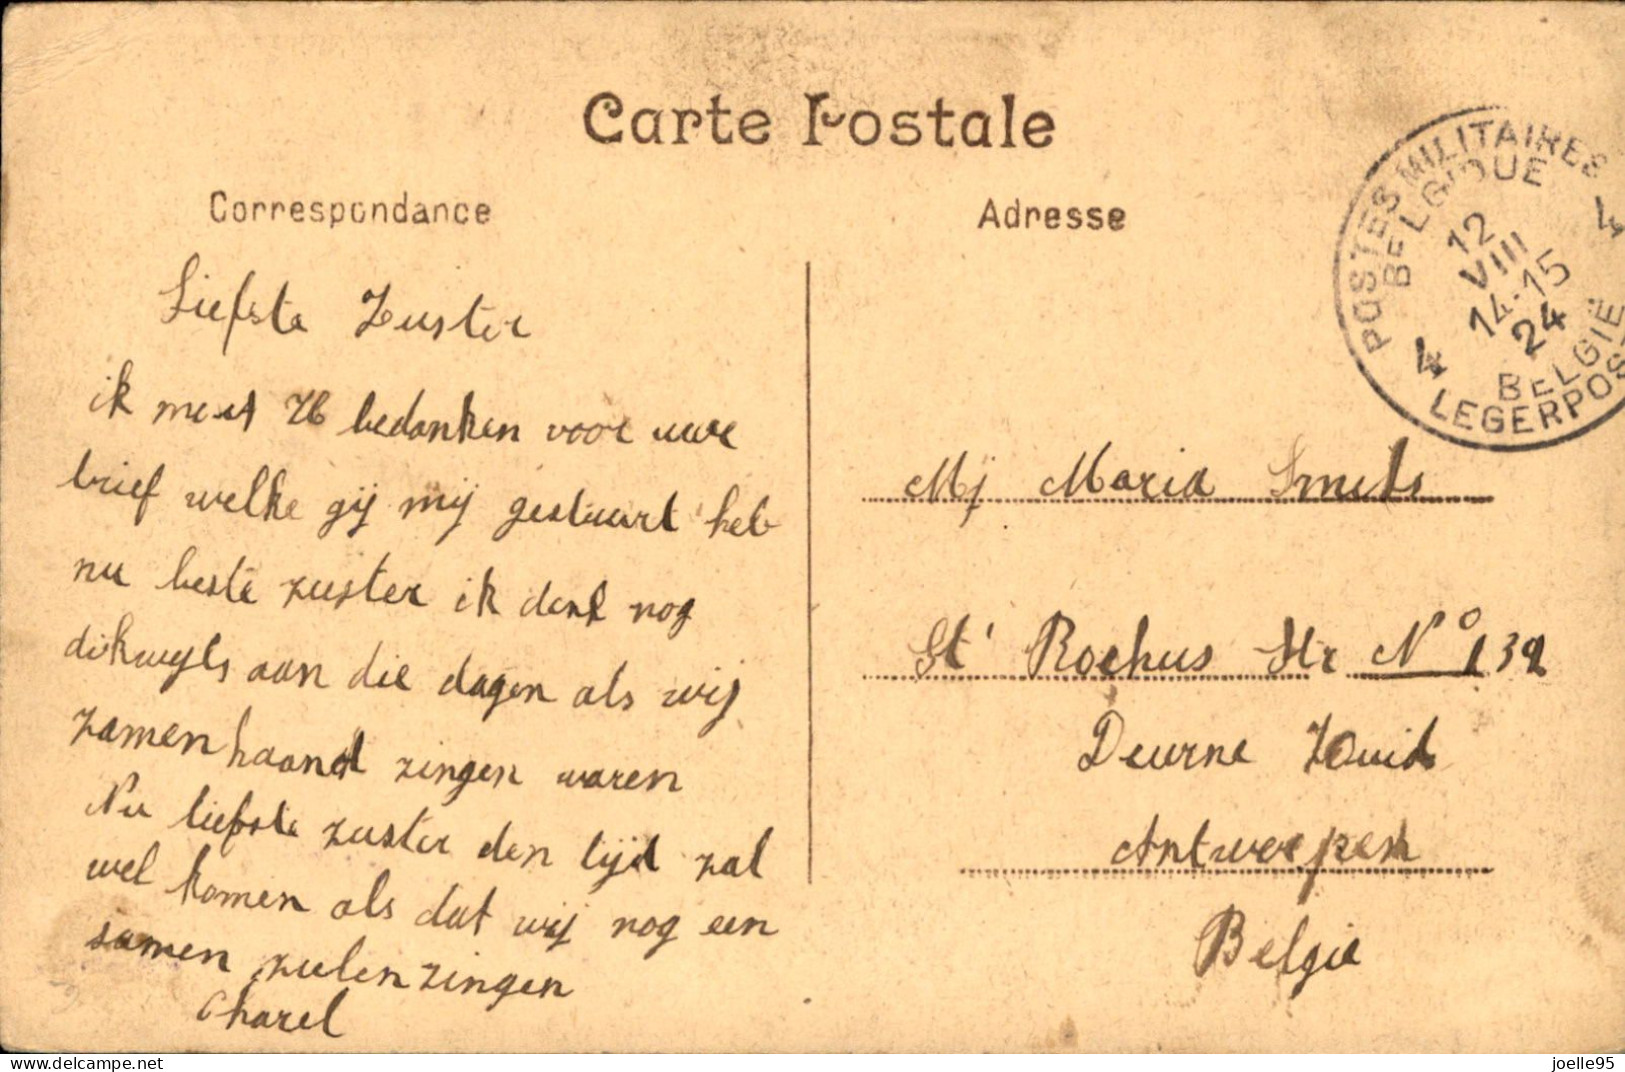 Carte Postale
Correspondance
Adresse
POSTES MILITAIRES
BELGIQUE
4
12
VIII
14-15
24
4
BELGIË
LEGERPOS
Liefste Zuster
ik moet U bedanken voor uwe
brief welke gij mij gestuurt heb
nu beste zuster ik denk nog
dikwyls aan die dagen als wij
zamen haand zingen waren
Nu liefste zuster den tijd zal
wel komen als dat wij nog een
samen zulen zingen
Charel
Mj Maria Smets
St' Rochus Str N° 132
Deurne Zuid
Antwerpen
Belgie
delcampe.net
joelle95